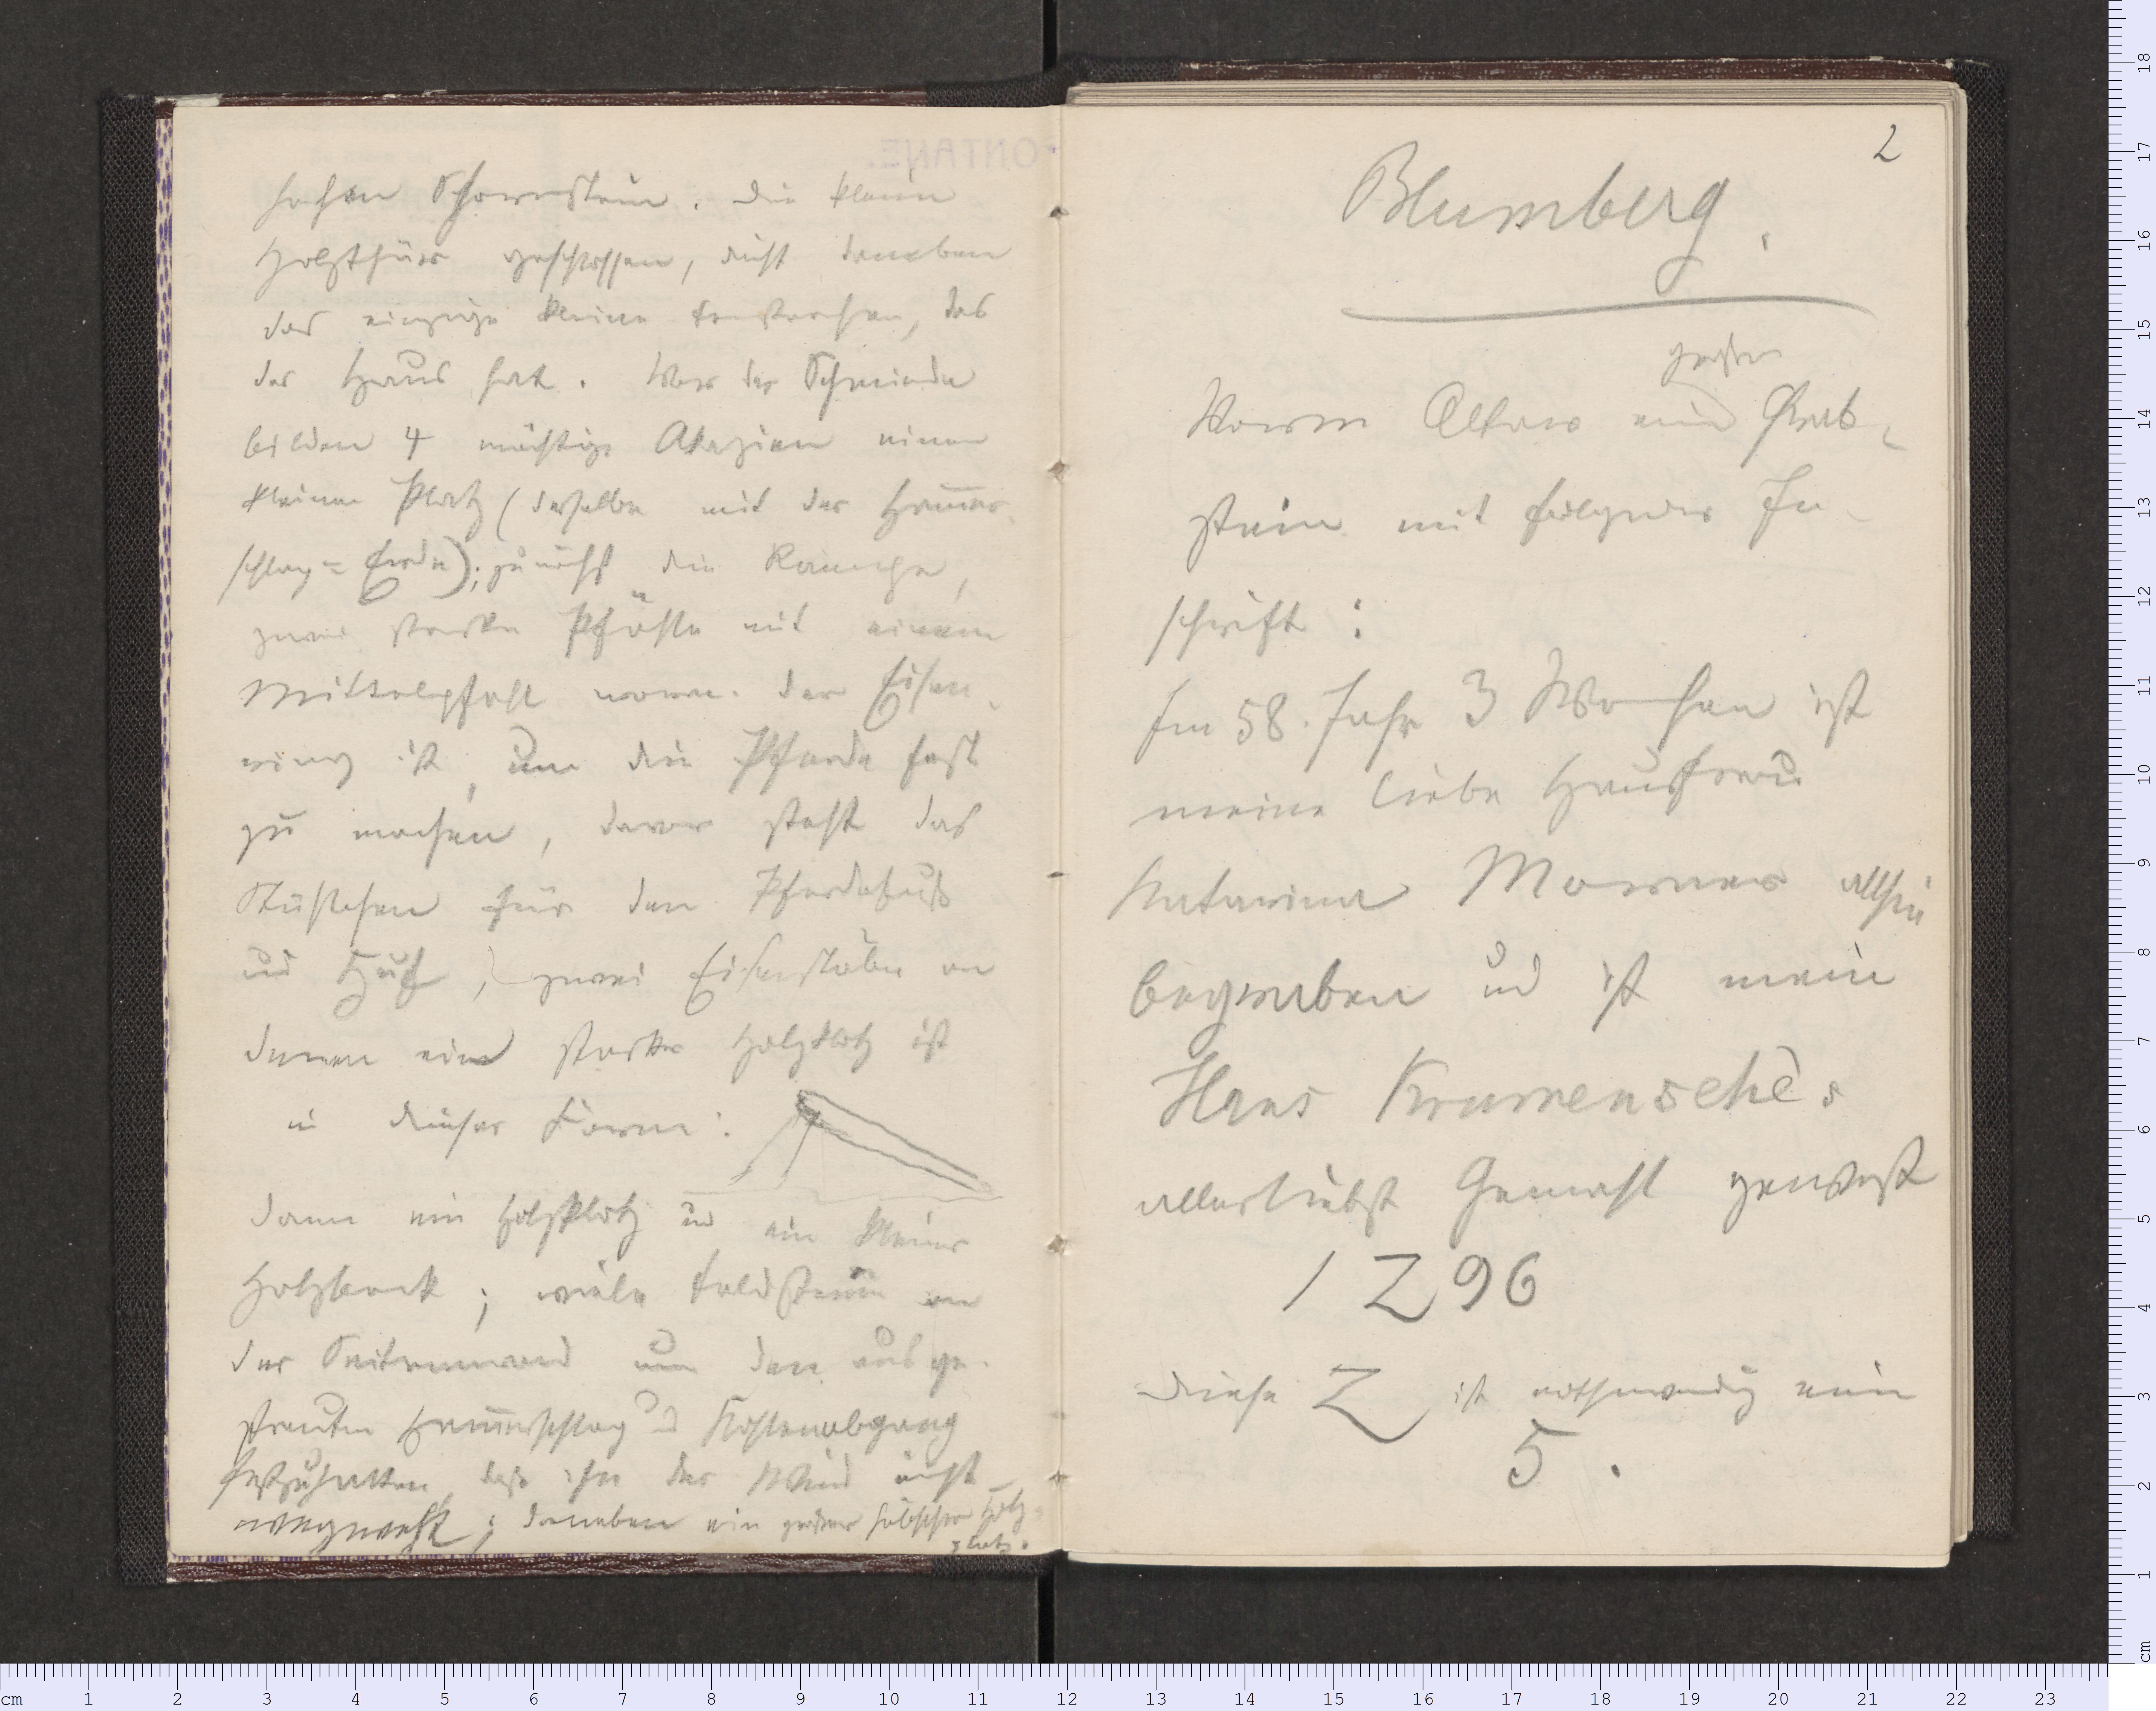 hohen Schornstein. Die kleine
Holzthür geschlossen, dicht daneben
das einzige kleine Fensterchen, das
das Haus hat. Vor der Schmiede
bilden 4 mächtige Akazien einen
kleinen Platz (derselbe mit der Ham̄er-
schlag-Erde); zunächst die Rampe,
zwei starke Pfähle mit einem
Mittelpfahl woran der Eisen-
ring ist, um die Pferde fest
zu machen, davor steht das
für den Pferdefuß
und Huf, zwei Eisenstäbe an
denen ein starker Holzklotz ist
in dieser Form:
dann ein Holzklotz und ein kleiner
Holzbock; viele Feldsteine an
der Seitenwand um den ausge-
streuten Ham̄erschlag und Kohlenabgang
festzuhalten, daß ihn der Wind nicht
wegweht; daneben ein großer hübscher Holz-
platz.
2
Blumberg.
großer
Vorm Altar ein Grab-
stein mit folgender In-
schrift:
Im 58. Jahr 3 Wochen ist
meine liebe Hausfrau
Katarina Morner allhie
begraben und ist mein
Hans Krumensehès
allerliebst Gemahl gewest
1Z96
Diese Z ist nothwendig eine
5.
FONTANE.